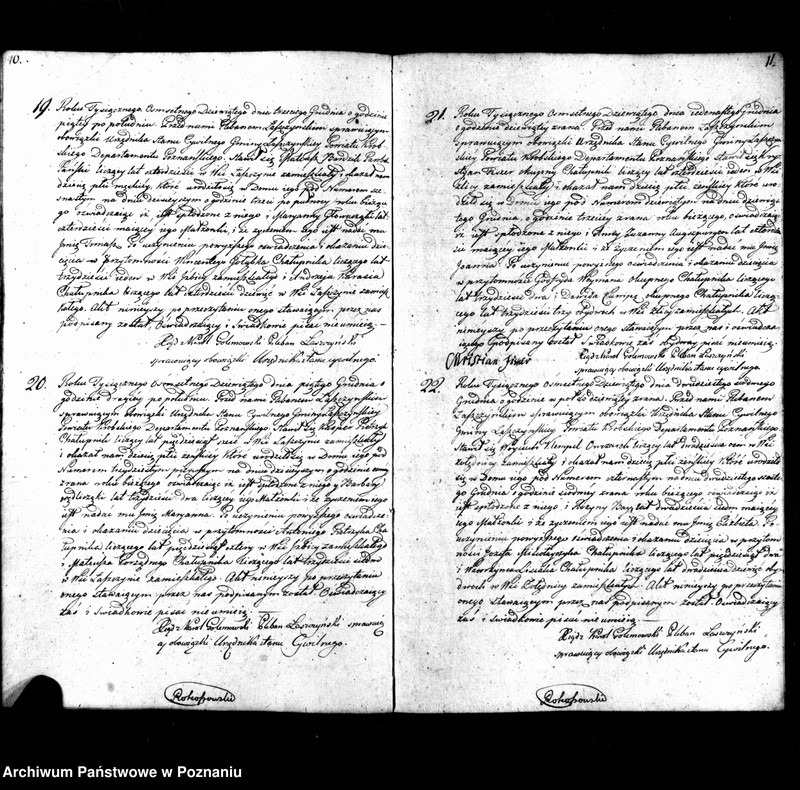 10.
19. Roku Tysiącznego Osmsetnego Dziewiątego dnia trzeciego Grudnia o godzinie
piątey po południu. Przed nami Plebanem Łaszczyńskim sprawuiącym
obowiązki Urzędnika Stanu Cywilnego Gminy Łaszczyńskiey Powiatu Krob
skiego Departamentu Poznańskiego. Stawił się Mateusz
liczący lat czterdzieści w Wsi Łaszczynie zamieszkały i okazał nam
dziecię płci męskiey, które urodziło się w Domu iego pod Numerem
na dniu dzisieyszym o godzinie trzeci po północy roku bieżą
cego oświadczaiąc iż iest spłodzone z niego i Maryanny lat
czterdzieści maiącey iego Małżonki i że życzeniem iego iest nadać mu
Jmię Tomasz. Po uczynieniu powyższego oświadczenia i okazaniu dzie
cięcia w Przytomności Wincentego Chałupnika liczącego lat
trzydzieści ieden w Wsi zamieszkałego i Andrzeia Karasia
Chałupnika liczącego lat czterdzieści dziewięć w Wsi Łaszczynie zamiesz
kałego. Akt ninieyszy po przeczytaniu onego stawaiącym przez nas
podpisany został, Oświadczaiący i Świadkowie pisać nie umieią. —
Xiądz Karol Golimowski Pleban Łaszczyński
sprawuiący obowiązki Urzędnika stanu cywilnego.
20. Roku Tysiącznego Osmsetnego Dziewiątego dnia piątego Grudnia o
godzinie drugiey po południu. Przed nami Plebanem Łaszczyńskim
sprawuiącym Obowiązki Urzędnika Stanu Cywilnego Gminy Łaszczyńskiey
Powiatu Krobskiego Departamentu Poznańskiego Stawił się
Chałupnik liczący lat pięćdziesiąt sześć w Wsi Łaszczynie zamieszkały
i okazał nam dziecię płci żeńskiey które urodziło się w Domu iego pod
Numerem trzydziestym pierwszym na dniu dzisieyszym o godzinie
zrana roku bieżącego oświadczaiąc iż iest spłodzone z niego y Barbary
lat trzydzieści dwa liczącey iego Małżonki i że życzeniem iego
iest nadać mu Jmię Maryanna. Po uczynieniu powyższego oświadcze
nia i okazaniu dziecięcia w przytomności Antoniego Pietrzyka Cha
łupnika liczącego lat pięćdziesiąt cztery w Wsi zamieszkałego
i Mateusza Chałupnika liczącego lat trzydzieści siedm
w Wsi Łaszczynie zamieszkałego. Akt ninieyszy po przeczytaniu
onego stawaiącym przez nas podpisanym został Oświadczaiący
zaś i świadkowie pisać nie umieią. —
Xiądz Karol Golimowski Pleban Łaszczyński sprawui
ący obowiązki Urzędnika stanu Cywilnego.
Rokossowski
11.
21. Roku Tysiącznego Osmsetnego Dziewiątego dnia iedenastego Grudnia
o godzinie dziewiątey zrana. Przed nami Plebanem Łaszczyńskim
sprawuiącym obowiązki Urzędnika Stanu Cywilnego Gminy Łaszczyń
skiey Powiatu Krobskiego Departamentu Poznańskiego stawił się Kry
styan Fiszer okupny Chałupnik liczący lat czterdzieści ieden w Wsi
zamieszkały i okazał nam dziecię płci żeńskiey które uro
dziło się w domu iego pod Numerem dziewiątym na dniu dziewią
tego Grudnia, o godzinie trzeciey zrana roku bieżącego, oświadczaiąc
iż iest spłodzone z niego i Anny Zuzanny lat czterdzie
ści maiącey iego Małżonki i że życzeniem iego iest nadać mu Jmię
Joanna. Po uczynieniu powyższego oświadczenia i okazaniu dziecięcia
w przytomności Godfryda Weymana okupnego Chałupnika liczącego
lat trzydzieści dwa i Dawida okupnego Chałupnika liczą
cego lat trzydzieści trzy obydwóch w Wsi zamieszkałych. Akt
ninieyszy po przeczytaniu onego Stawaiącym przez nas i oświadcza
iącego podpisany został Świadkowie zaś obydway pisać nie umieią.
Christian Fiser
Xiądz Karol Golimowski Pleban Łaszczyński
sprawuiący obowiązki Urzędnika stanu cywilnego.
22. Roku Tysiącznego Osmsetnego Dziewiątego dnia dwudziestego siódmego
Grudnia o godzinie w pół dziewiątey zrana. Przed nami Plebanem
Łaszczyńskim sprawuiącym obowiązki Urzędnika Stanu Cywilnego
Gminy Łaszczyńskiey Powiatu Krobskiego Departamentu Poznańskiego
Stawił się Woyciech Owczarz liczący lat dwadzieścia ośm w Wsi
zamieszkały i okazał nam dziecię płci żeńskiey które urodziło
się w Domu iego pod Numerem czternastym na dniu dwudziestego szóste
go Grudnia o godzinie siódmey zrana roku bieżącego oświadczaiąc iż
iest spłodzone z niego i Katarzyny lat dwadzieścia siedm maiącey
iego Małżonki i że życzeniem iego iest nadać mu Jmię Elżbieta. Po
uczynieniu powyższego oświadczenia i okazaniu dziecięcia w przytom
ności Józefa Chałupnika liczącego lat pięćdziesiąt dwa
i Wawrzyna Chałupnika liczącego lat dwadzieścia dziewięć oby
dwóch w Wsi zamieszkałych. Akt ninieyszy po przeczytaniu
onego Stawaiącym przez nas podpisanym został Oświadczaiący
zaś i świadkowie pisać nie umieią. —
Xiądz Karol Golimowski Pleban Łaszczyński
sprawuiący obowiązki Urzędnika stanu Cywilnego.
Rokossowski
Archiwum Państwowe w Poznaniu